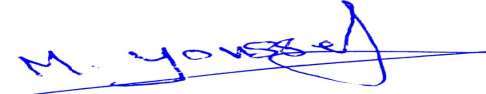 M. Youssef